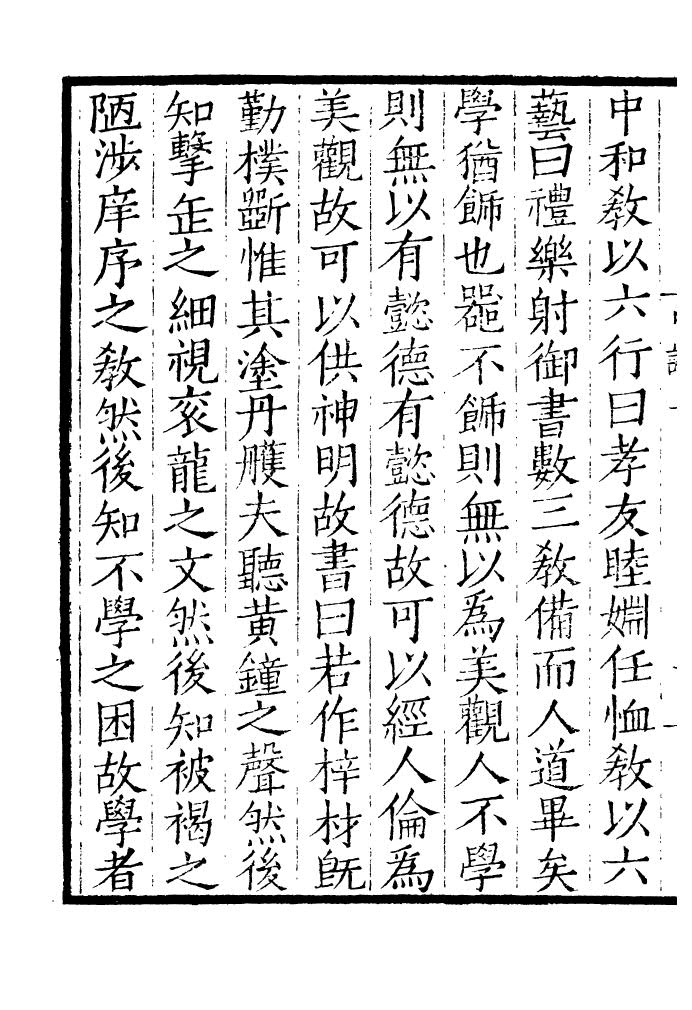 中和教以六行曰孝友睦婣任恤教以六
藝曰禮樂射御書數三教備而人道畢矣
學猶飾也器不飾則無以爲美觀人不學
則無以有懿德有懿德故可以經人倫爲
美觀故可以供神明故書曰若作梓材旣
勤樸斲惟其塗丹雘夫聽黃鐘之聲然後
知擊缶之細視衮龍之文然後知被褐之
陋涉庠序之教然後知不學之困故學者